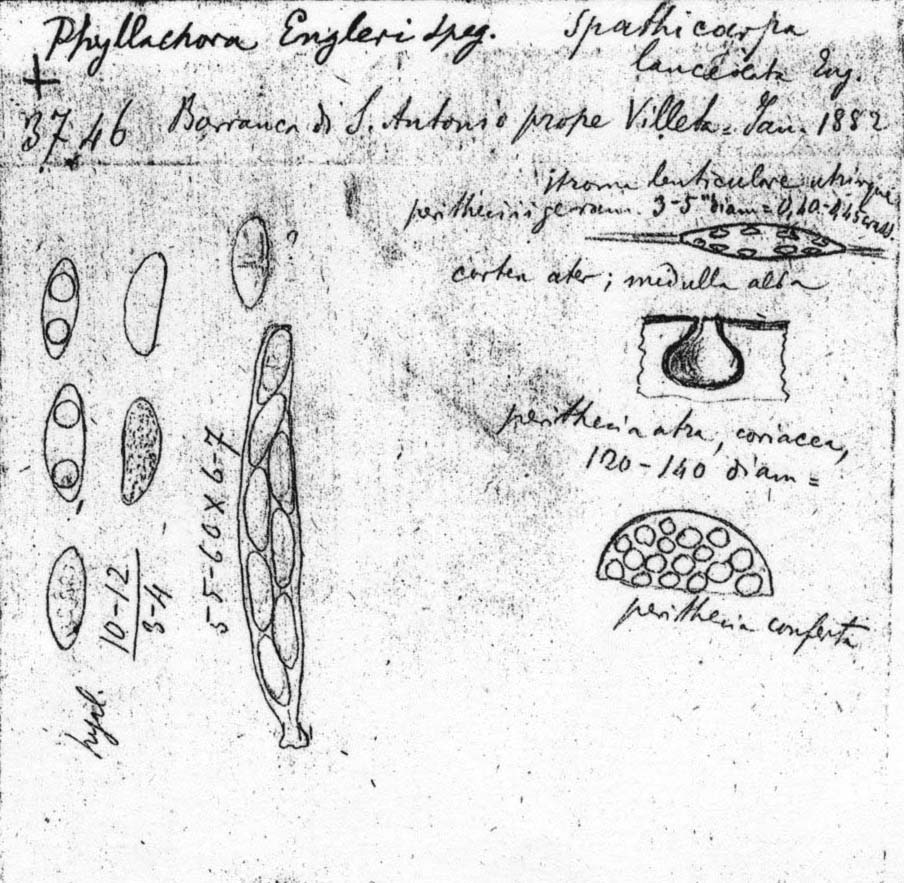 Phyllachora Engleri Speg. Spathicarpa
lanceolata Eng.
+
3746 Barranca di S. Antonio prope Villeta = Jan. 1882
stroma lenticulare utrinque
peritheciigerum. 3-5 diam = 0,40-
cortex ater; medulla alba
?
perithecia atra, coriacea,
120-140 diam =
perithecia conferta
55-60 x 6-7
10-12
3-4
hyal.